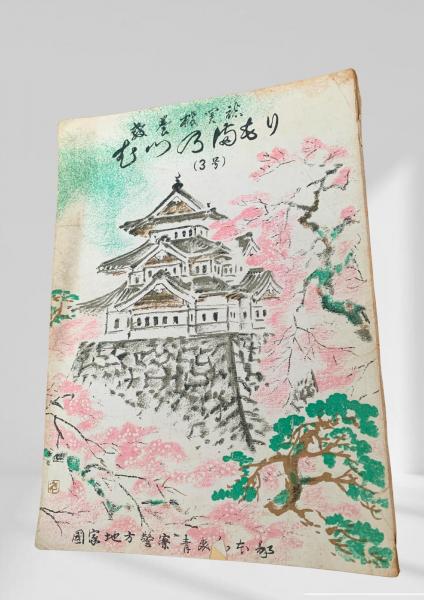 教養機関誌
むつ乃満もり
(3号)
國家地方警察青森本部